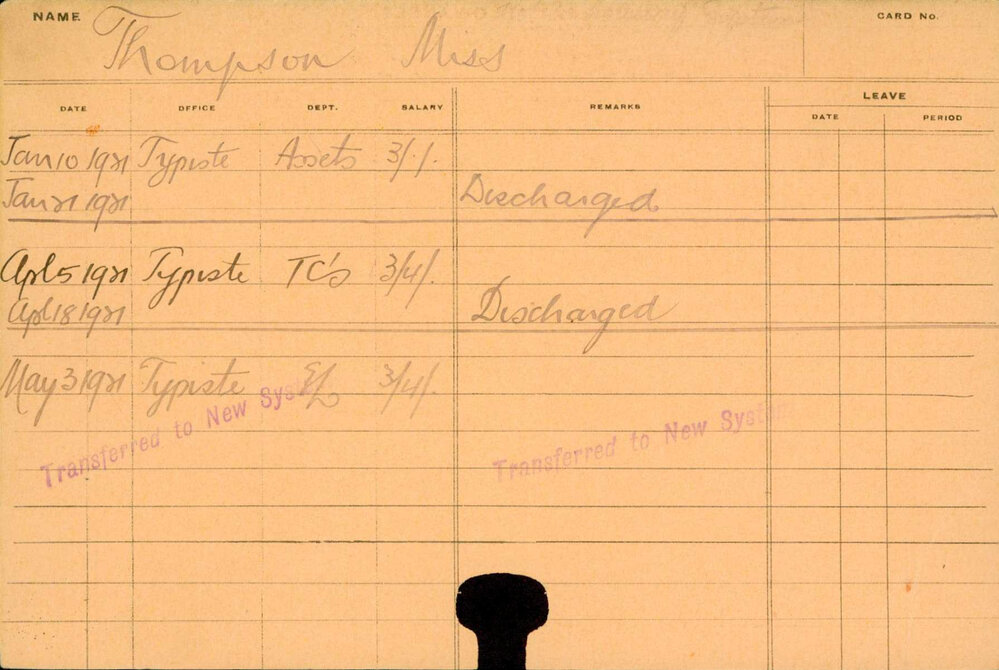 NAME Thompson Miss CARD No.
DATE OFFICE DEPT. SALARY REMARKS LEAVE
DATE PERIOD
Jan 10 1921 Typiste Assets 3/1/.
Jan 21 1921 Discharged
Apl 5 1921 Typiste TC's 3/4/.
Apl 18 1921 Discharged
May 3 1921 Typiste 3/4/.
Transferred to New System
Transferred to New System